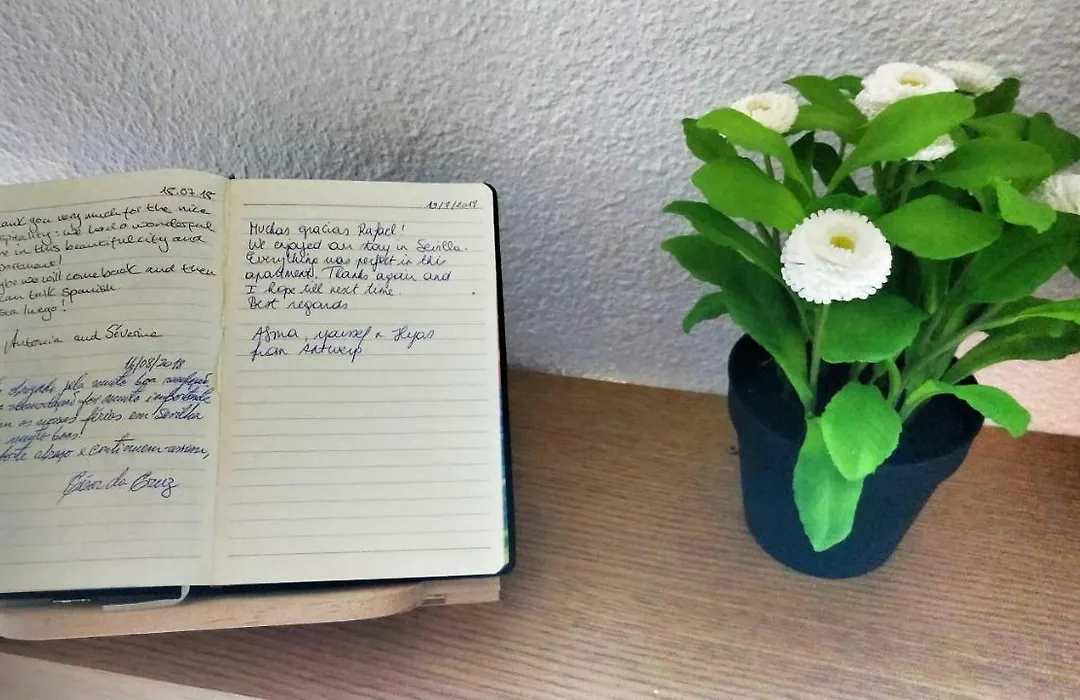 15.07.18
ank you very much for the nice
pitality: we had a wonderful
e in this beautiful city and
partment!
ybe we will come back and then
can talk Spanish.
sta luego!
Antonia and Séverine
14/08/2018
obrigado pela muito boa
foi muito importante
as nossas férias em Sevilha
muito bom!
forte abraço e continuem assim,
César da Cruz
19/9/2018
Muchas gracias Rafael!
We enjoyed our stay in Sevilla.
Everything was perfect in this
apartment. Thanks again and
I hope till next time.
Best regards
Asma, youssef &
from Antwerp